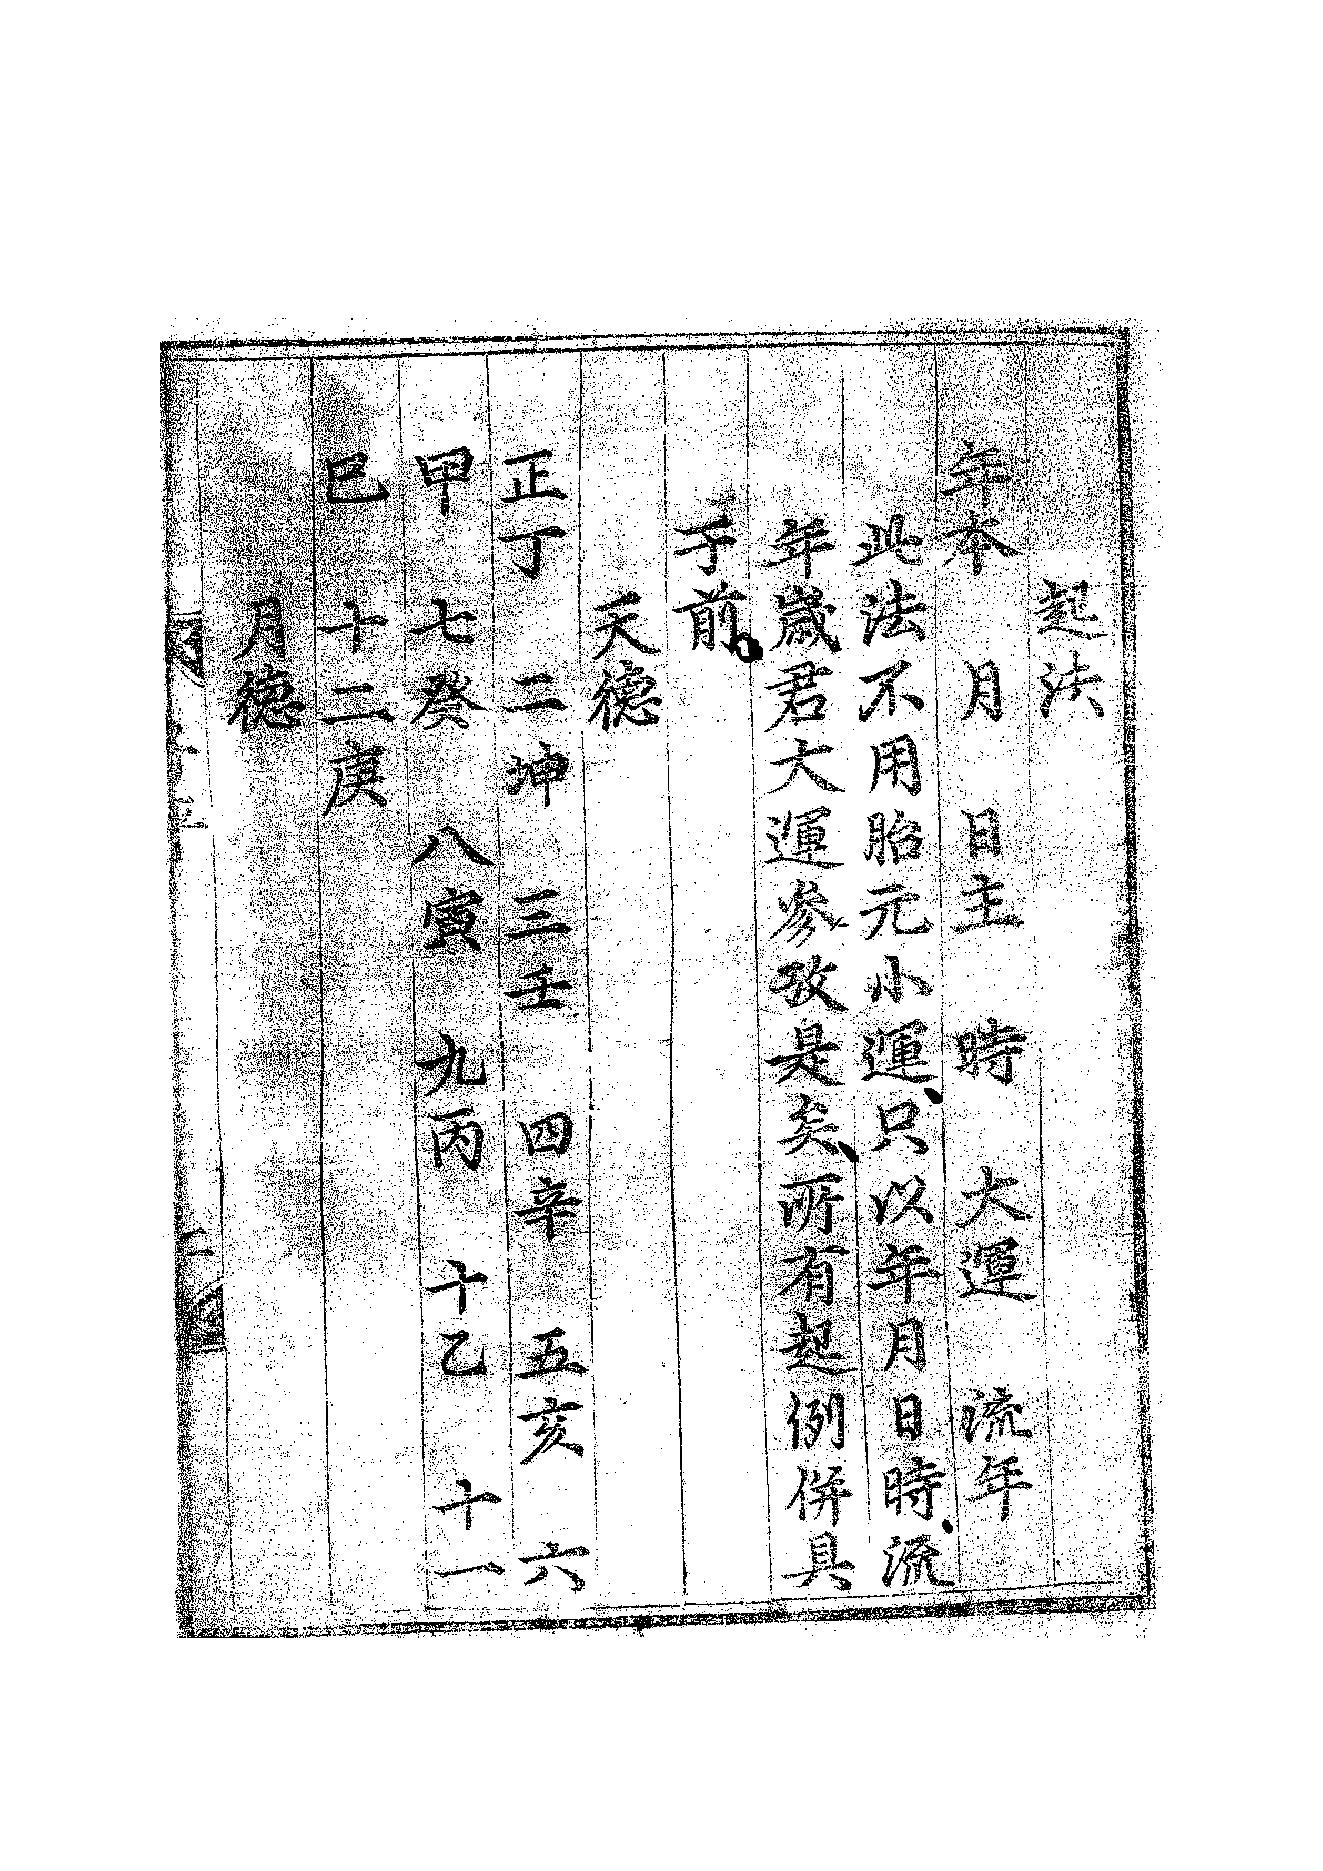 起法
年本　月　日主　時　大運　流年
此法不用胎元小運、只以年月日時、流
年歲君大運參攷是矣、所有起例併具
于前。
天德
正丁　二坤　三壬　四辛　五亥　六
甲　七癸　八寅　九丙　十乙　十一
巳　十二庚
月德